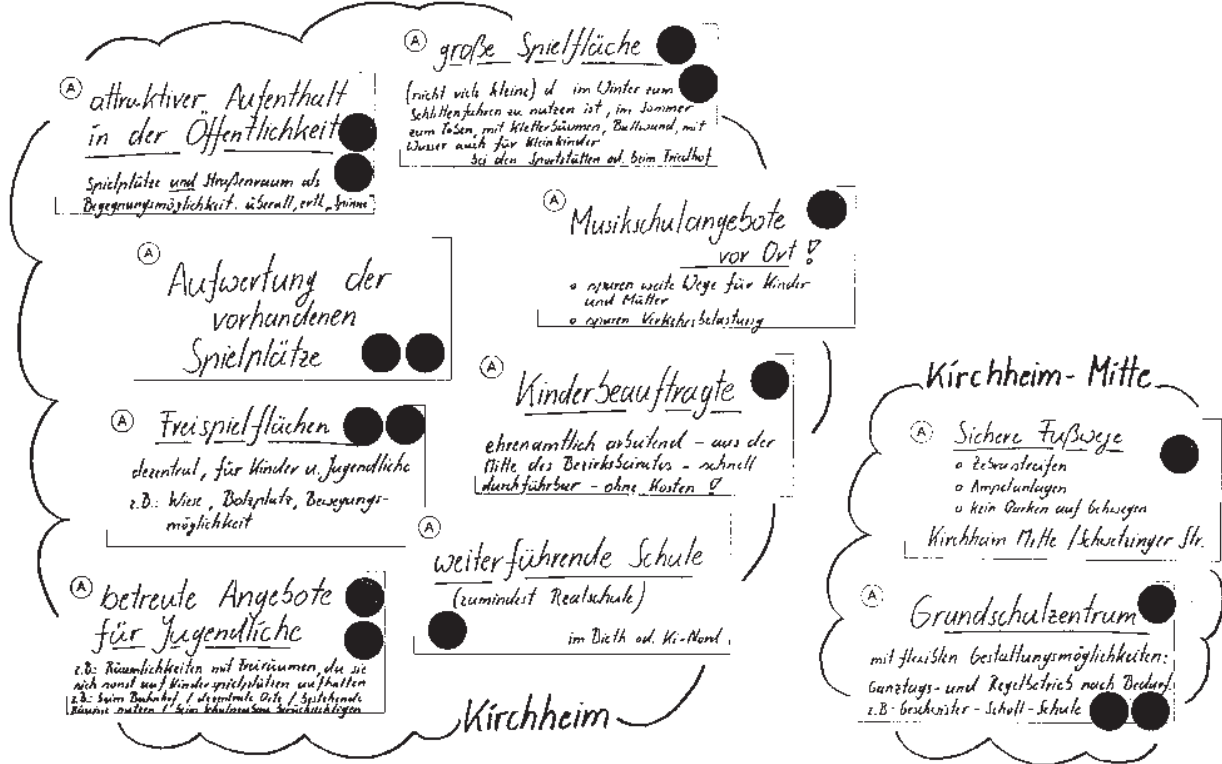 A
attraktiver Aufenthalt
in der Öffentlichkeit
Spielplätze und Straßenraum als
Begegnungsmöglichkeit. überall, evtl. „Spinne"
A
große Spielfläche
(nicht viele kleine) d im Winter zum
Schlittenfahren zu nutzen ist, im Sommer
zum Toben, mit Kletterbäumen, Ballwand, mit
Wasser auch für Kleinkinder
bei den Sportstätten od. beim Friedhof
A
Musikschulangebote
vor Ort!
o sparen weite Wege für Kinder
und Mütter
o sparen Verkehrsbelastung
A
Aufwertung der
vorhandenen
Spielplätze
A
Kinderbeauftragte
ehrenamtlich arbeitend - aus der
Mitte des Bezirksbeirates - schnell
durchführbar - ohne Kosten!
A
Freispielflächen
dezentral, für Kinder u. Jugendliche
z.B.: Wiese, Bolzplatz, Bewegungs-
möglichkeit
A
weiterführende Schule
(zumindest Realschule)
im Bieth od. Ki-Nord
A
betreute Angebote
für Jugendliche
z.B.: Räumlichkeiten mit Freiräumen, da sie
sich sonst auf Kinderspielplätzen aufhalten
z.B.: beim Bahnhof / dezentrale Orte / bestehende
Räume nutzen / beim Schulneubau berücksichtigen
Kirchheim
Kirchheim-Mitte
A
Sichere Fußwege
o Zebrastreifen
o Ampelanlagen
o kein Parken auf Gehwegen
Kirchheim Mitte / Schwetzinger Str.
A
Grundschulzentrum
mit flexiblen Gestaltungsmöglichkeiten:
Ganztags- und Regelbetrieb nach Bedarf.
z.B. Geschwister-Scholl-Schule